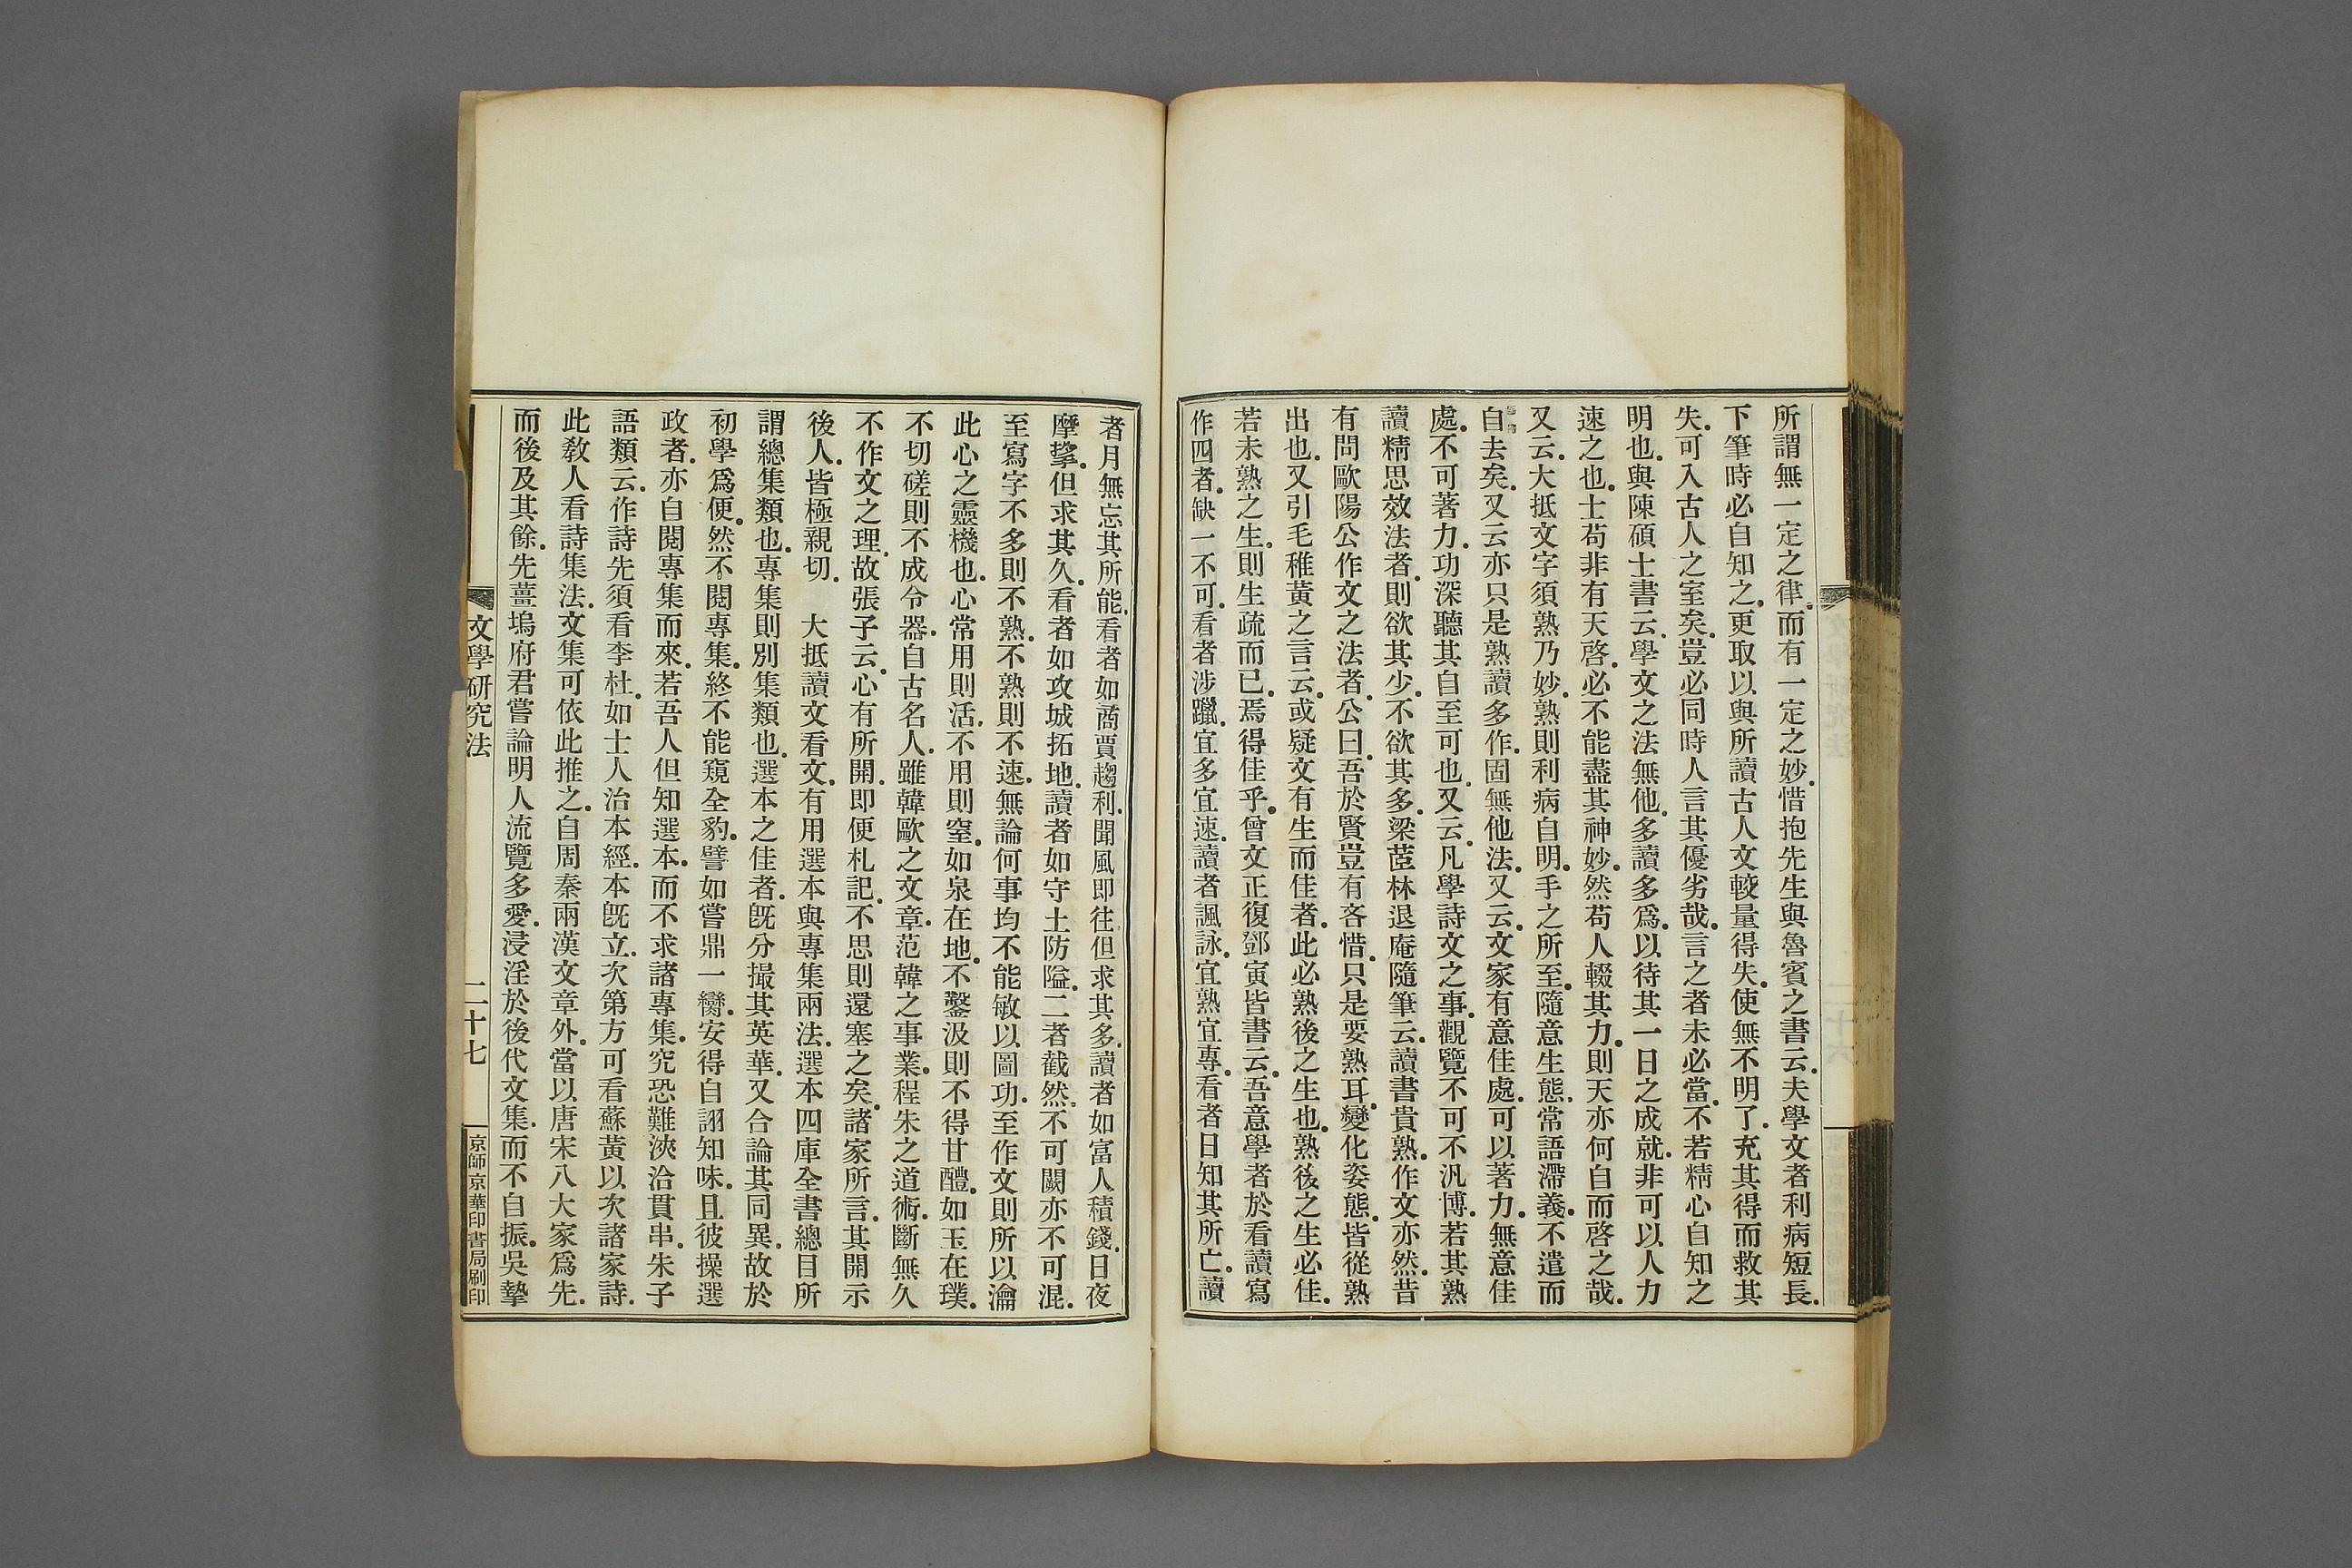 所謂無一定之律.而有一定之妙.惜抱先生與魯賓之書云.夫學文者利病短長.
下筆時必自知之.更取以與所讀古人文較量得失.使無不明了.充其得而救其
失.可入古人之室矣.豈必同時人言其優劣哉.言之者未必當.不若精心自知之
明也.與陳碩士書云.學文之法無他.多讀多爲.以待其一日之成就.非可以人力
速之也.士苟非有天啓.必不能盡其神妙.然苟人輟其力.則天亦何自而啓之哉.
又云.大抵文字須熟乃妙.熟則利病自明.手之所至.隨意生態.常語滯義.不遣而
自去矣.又云亦只是熟讀多作.固無他法.又云.文家有意佳處.可以著力.無意佳
處.不可著力.功深聽其自至可也.又云.凡學詩文之事.觀覽不可不汎博.若其熟
讀精思效法者.則欲其少.不欲其多.梁茝林退庵隨筆云.讀書貴熟.作文亦然.昔
有問歐陽公作文之法者.公曰.吾於賢豈有吝惜.只是要熟耳.變化姿態.皆從熟
出也.又引毛稚黃之言云.或疑文有生而佳者.此必熟後之生也.熟後之生必佳.
若未熟之生.則生疏而已.焉得佳乎.曾文正復鄧寅皆書云.吾意學者於看讀寫
作四者.缺一不可.看者涉躐.宜多宜速.讀者諷詠.宜熟宜專.看者日知其所亡.讀
者月無忘其所能.看者如商賈趨利.聞風即往.但求其多.讀者如富人積錢.日夜
摩挲.但求其久.看者如攻城拓地.讀者如守土防隘.二者截然.不可闕亦不可混.
至寫字不多則不熟.不熟則不速.無論何事均不能敏以圖功.至作文則所以瀹
此心之靈機也.心常用則活.不用則窒.如泉在地.不鑿汲則不得甘醴.如玉在璞.
不切磋則不成令器.自古名人.雖韓歐之文章.范韓之事業.程朱之道術.斷無久
不作文之理.故張子云.心有所開.即便札記.不思則還塞之矣.諸家所言.其開示
後人.皆極親切.　大抵讀文看文.有用選本與專集兩法.選本四庫全書總目所
謂總集類也.專集則別集類也.選本之佳者.旣分撮其英華.又合論其同異.故於
初學爲便.然不閱專集.終不能窺全豹.譬如嘗鼎一臠.安得自詡知味.且彼操選
政者.亦自閱專集而來.若吾人但知選本.而不求諸專集.究恐難浹洽貫串.朱子
語類云.作詩先須看李杜.如士人治本經.本旣立.次第方可看蘇黃以次諸家詩.
此敎人看詩集法.文集可依此推之.自周秦兩漢文章外.當以唐宋八大家爲先.
而後及其餘.先薑塢府君嘗論明人流覽多愛.浸淫於後代文集.而不自振.吳摯
文學研究法
二十七
京師京華印書局刷印